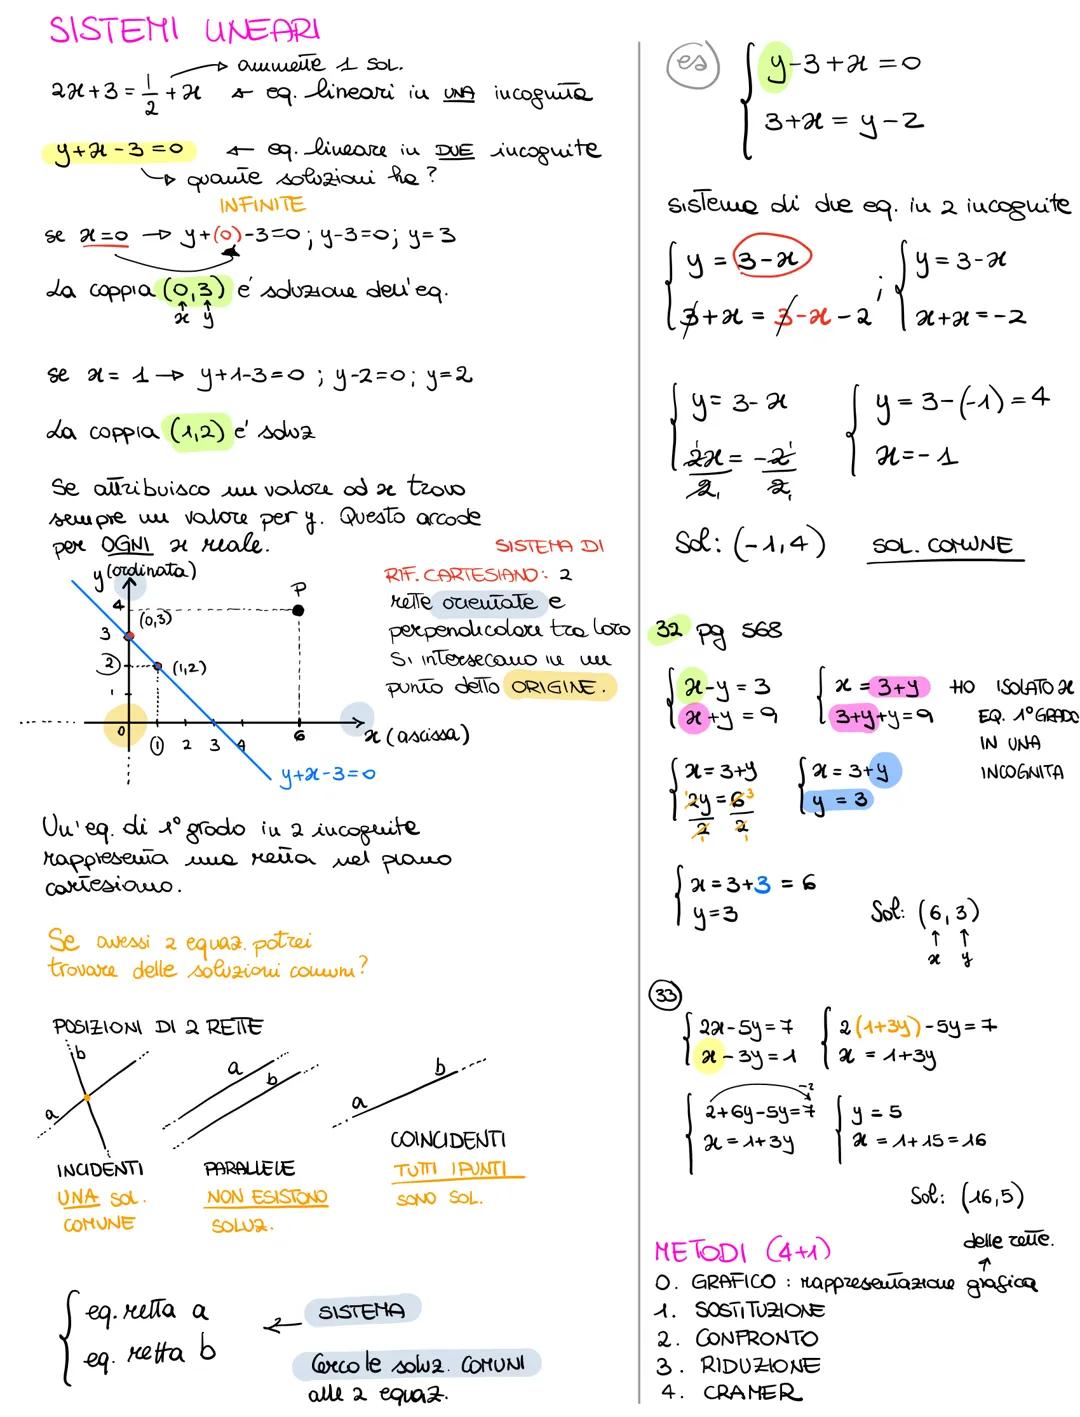 SISTEMI LINEARI
→ ammette 1 SOL.
2x+3 = 1/2 + x ← eq. lineari in UNA incognita
y+x-3=0 ← eq. lineare in DUE incognite
→ quante soluzioni ha?
INFINITE
se x=0 → y+(0)-3=0; y-3=0; y=3
La coppia (0,3) é soluzione dell'eq.
x y
se x= 1 → y+1-3=0 ; y-2=0; y=2
La coppia (1,2) e' soluz
Se attribuisco un valore ad x trovo
sempre un valore per y. Questo accade
per OGNI x reale.
y (ordinata)
4
3
2
1
0
(0,3)
(1,2)
P
1 2 3 4 6
x (ascissa)
y+x-3=0
SISTEMA DI
RIF. CARTESIANO: 2
rette orientate e
perpendicolare tra loro
Si intersecano in un
punto detto ORIGINE.
Un'eq. di 1° grado in 2 incognite
rappresenta una retta nel piano
cartesiano.
Se avessi 2 equaz. potrei
trovare delle soluzioni comuni?
POSIZIONI DI 2 RETTE
b
a
a
b
a
b
INCIDENTI
UNA SOL.
COMUNE
PARALLELE
NON ESISTONO
SOLUZ.
COINCIDENTI
TUTTI I PUNTI
SONO SOL.
{ eq. retta a
eq. retta b
← SISTEMA
Cerco le soluz. COMUNI
alle 2 equaz.
es { y-3+x=0
3+x = y-2
sistema di due eq. in 2 incognite
{ y = 3-x ; { y = 3-x
3+x = 3-x-2 x+x=-2
{ y= 3-x { y = 3-(-1) = 4
2x/2 = -2/2 x=-1
1 1
Sol: (-1,4) SOL. COMUNE
32 pg 568
{ x-y = 3 { x = 3+y HO ISOLATO x
x+y = 9 3+y+y=9 EQ. 1° GRADO
IN UNA
INCOGNITA
{ x= 3+y { x = 3+y
2y/2 = 6/2 y = 3
1 3
{ x = 3+3 = 6
y=3
Sol: (6,3)
x y
33
{ 2x-5y=7 { 2(1+3y)-5y=7
x-3y=1 x = 1+3y
-2
{ 2+6y-5y=7 { y = 5
x = 1+3y x = 1+15=16
Sol: (16,5)
METODI (4+1)
delle rette.
0. GRAFICO : rappresentazione grafica
1. SOSTITUZIONE
2. CONFRONTO
3. RIDUZIONE
4. CRAMER